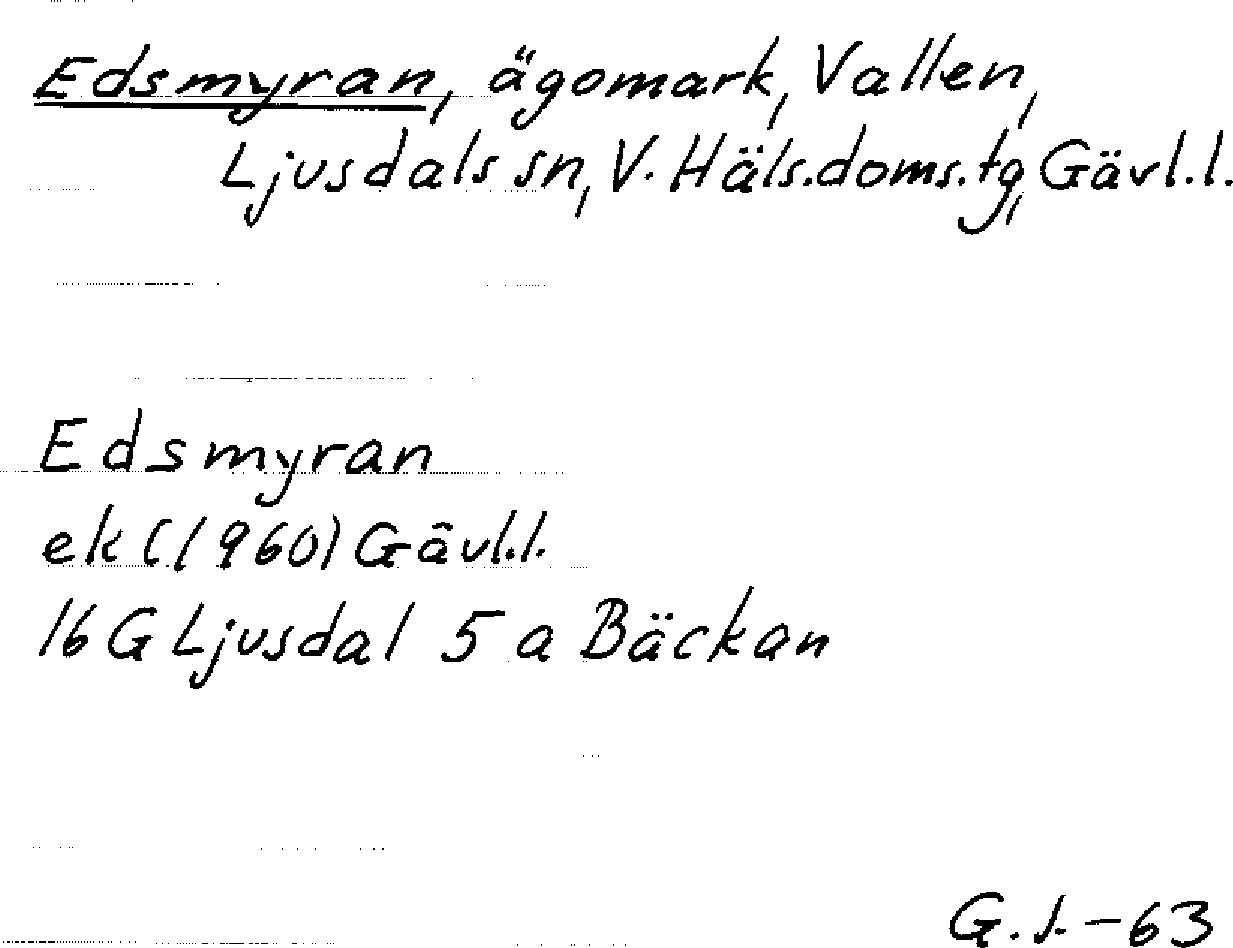 Edsmyran, ägomark, Vallen,
Ljusdals sn, V. Häls.doms.tg, Gävl.l.
Edsmyran
ek (1960) Gävl.l.
16 G Ljusdal 5 a Bäckan
G.J.-63